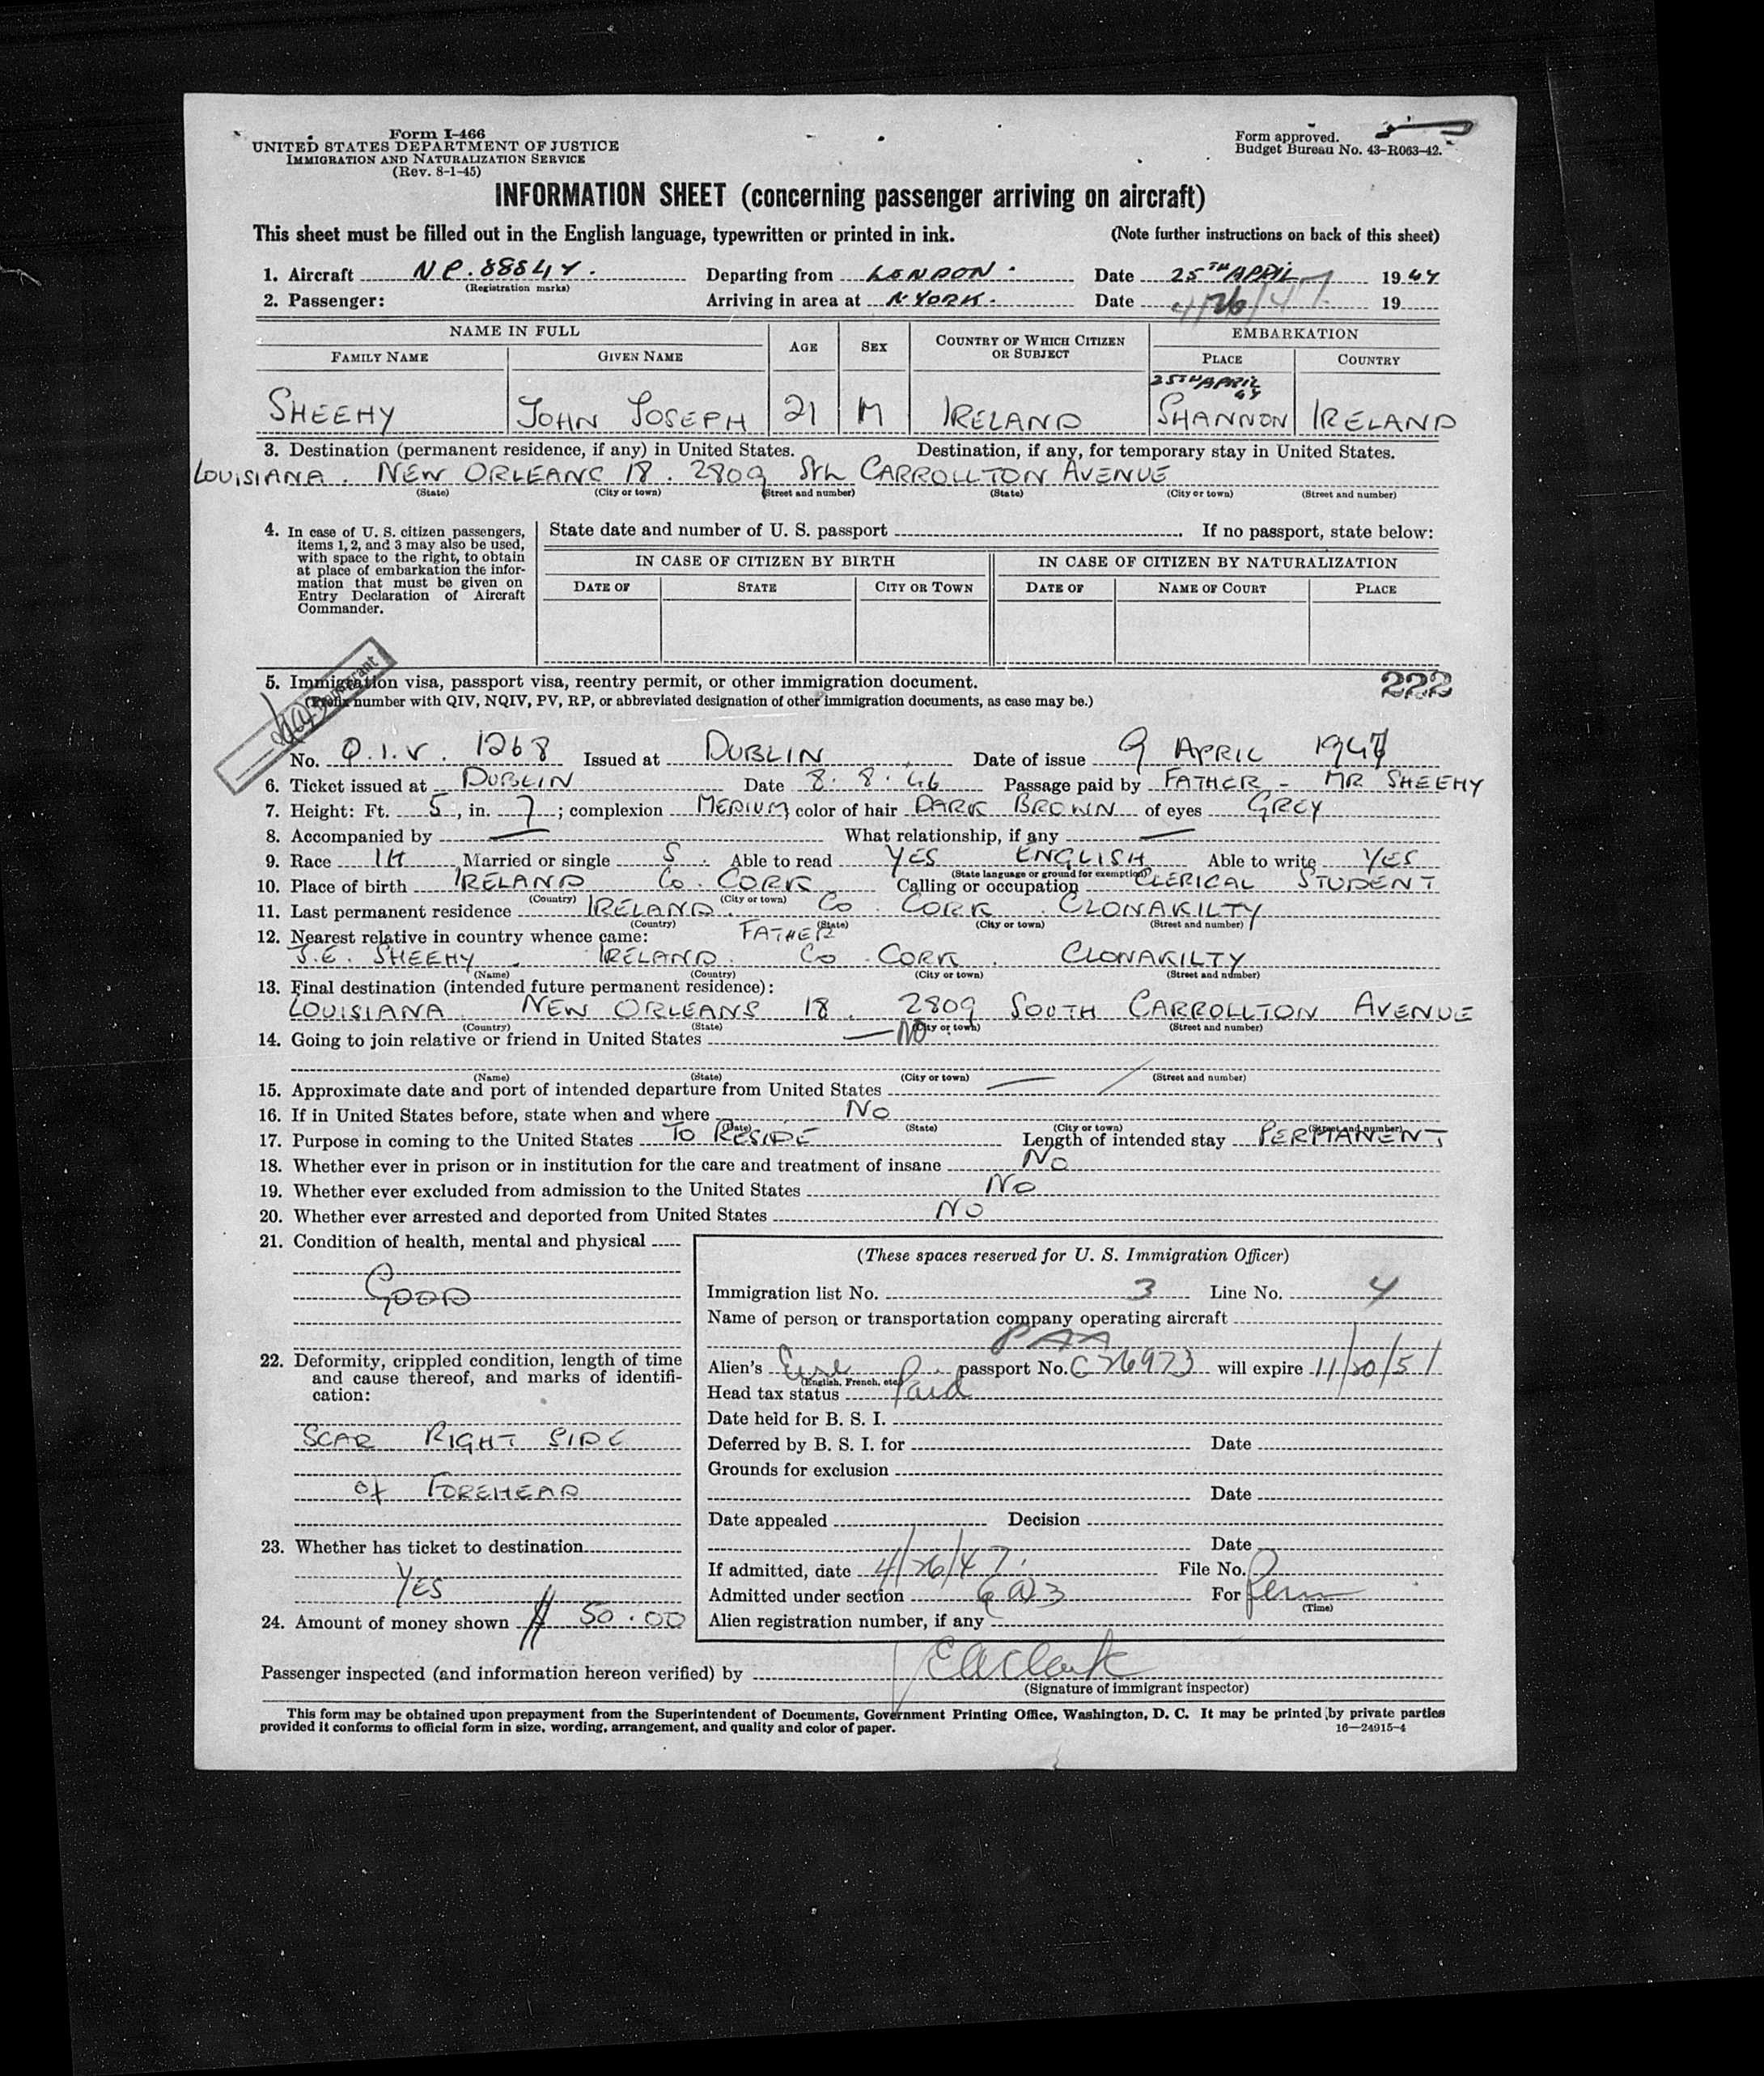 Form I-466
UNITED STATES DEPARTMENT OF JUSTICE
IMMIGRATION AND NATURALIZATION SERVICE
(Rev. 8-1-45)
Form approved.
Budget Bureau No. 43-R063-42.
INFORMATION SHEET (concerning passenger arriving on aircraft)
This sheet must be filled out in the English language, typewritten or printed in ink. (Note further instructions on back of this sheet)
1. Aircraft Departing from LONDON. Date 25TH APRIL 1947
(Registration marks)
2. Passenger: Arriving in area at N. YORK. Date 4/26/47. 19
NAME IN FULL AGE SEX COUNTRY OF WHICH CITIZEN OR SUBJECT EMBARKATION
FAMILY NAME GIVEN NAME PLACE COUNTRY
25TH APRIL
47
SHEEHY JOHN JOSEPH 21 M IRELAND SHANNON IRELAND
3. Destination (permanent residence, if any) in United States. Destination, if any, for temporary stay in United States.
LOUISIANA. NEW ORLEANS 18. 2809 Sth CARROLLTON AVENUE
(State) (City or town) (Street and number) (State) (City or town) (Street and number)
4. In case of U. S. citizen passengers, items 1, 2, and 3 may also be used, with space to the right, to obtain at place of embarkation the information that must be given on Entry Declaration of Aircraft Commander.
State date and number of U. S. passport If no passport, state below:
IN CASE OF CITIZEN BY BIRTH IN CASE OF CITIZEN BY NATURALIZATION
DATE OF STATE CITY OR TOWN DATE OF NAME OF COURT PLACE
5. Immigration visa, passport visa, reentry permit, or other immigration document. 222
(Prefix number with QIV, NQIV, PV, RP, or abbreviated designation of other immigration documents, as case may be.)
No. Q.I.V. 1268 Issued at DUBLIN Date of issue 9 APRIL 1947
6. Ticket issued at DUBLIN Date 8.8.46 Passage paid by FATHER - MR SHEEHY
7. Height: Ft. 5, in. 7; complexion MEDIUM, color of hair DARK BROWN of eyes GREY
8. Accompanied by — What relationship, if any —
9. Race IH Married or single S. Able to read YES ENGLISH Able to write YES
(State language or ground for exemption)
10. Place of birth IRELAND Co. CORK Calling or occupation CLERICAL STUDENT
(Country) (City or town)
11. Last permanent residence IRELAND. Co. CORK. CLONAKILTY
(Country) (State) (City or town) (Street and number)
12. Nearest relative in country whence came: FATHER
J.E. SHEEHY. IRELAND. Co. CORK. CLONAKILTY
(Name) (Country) (City or town) (Street and number)
13. Final destination (intended future permanent residence):
LOUISIANA NEW ORLEANS 18. 2809 SOUTH CARROLLTON AVENUE
(Country) (State) (City or town) (Street and number)
14. Going to join relative or friend in United States — NO
(Name) (State) (City or town) (Street and number)
15. Approximate date and port of intended departure from United States —
16. If in United States before, state when and where NO
(Date) (State) (City or town) (Street and number)
17. Purpose in coming to the United States TO RESIDE Length of intended stay PERMANENT
18. Whether ever in prison or in institution for the care and treatment of insane NO
19. Whether ever excluded from admission to the United States NO
20. Whether ever arrested and deported from United States NO
21. Condition of health, mental and physical
GOOD
22. Deformity, crippled condition, length of time and cause thereof, and marks of identification:
SCAR RIGHT SIDE
of FOREHEAD
23. Whether has ticket to destination
YES
24. Amount of money shown $ 50.00
(These spaces reserved for U. S. Immigration Officer)
Immigration list No. 3 Line No. 4
Name of person or transportation company operating aircraft
PAA
Alien's Eire passport No. C26973 will expire 11/20/51
(English, French, etc.)
Head tax status Paid
Date held for B. S. I.
Deferred by B. S. I. for Date
Grounds for exclusion
Date
Date appealed Decision
Date
If admitted, date 4/26/47. File No.
Admitted under section 6(A)3 For Perm
(Time)
Alien registration number, if any
Passenger inspected (and information hereon verified) by EAClark
(Signature of immigrant inspector)
This form may be obtained upon prepayment from the Superintendent of Documents, Government Printing Office, Washington, D. C. It may be printed by private parties
provided it conforms to official form in size, wording, arrangement, and quality and color of paper. 16—24915-4